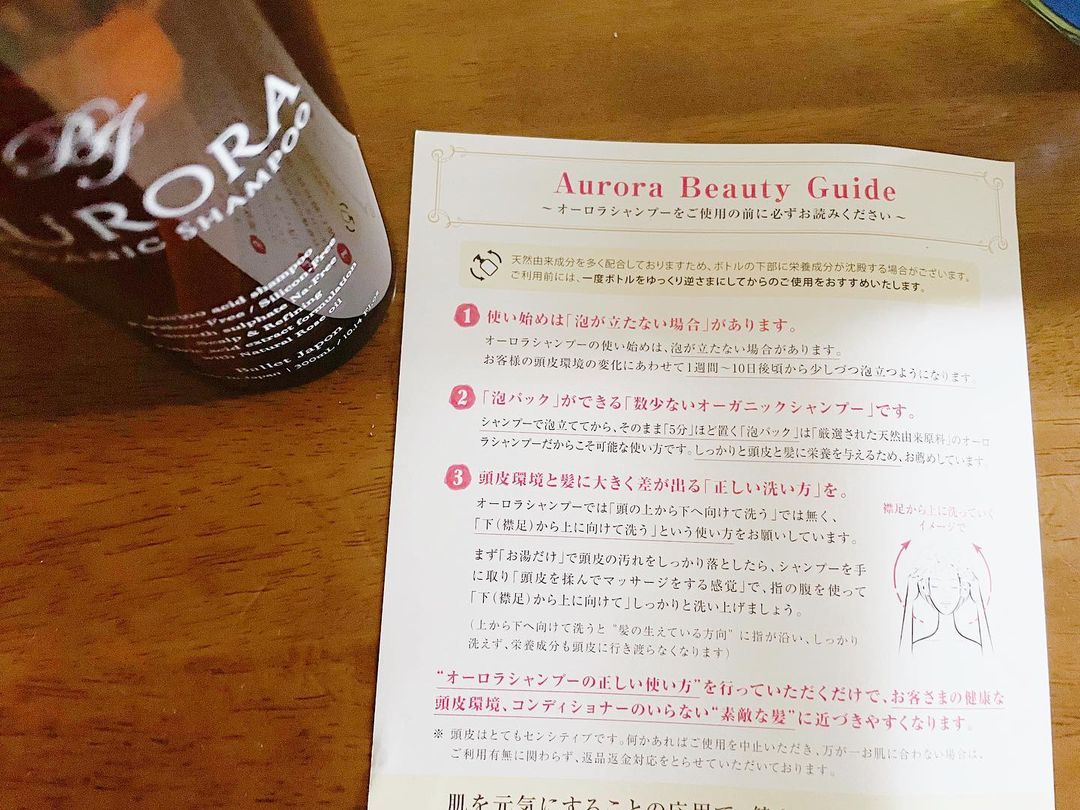 BJ
URORA
ANIC SHAMPOO
acid shampoo
Free / Silicon-Free
sulphate Na-Free
Scalp & Refining
extract formulation
Natural Rose oil
Ballet Japon
Japan | 300mL / 10.14 fl.oz
Aurora Beauty Guide
～オーロラシャンプーをご使用の前に必ずお読みください～
天然由来成分を多く配合しておりますため、ボトルの下部に栄養成分が沈殿する場合がございます。
ご利用前には、一度ボトルをゆっくり逆さまにしてからのご使用をおすすめいたします。
1 使い始めは「泡が立たない場合」があります。
オーロラシャンプーの使い始めは、泡が立たない場合があります。
お客様の頭皮環境の変化にあわせて1週間～10日後頃から少しづつ泡立つようになります。
2 「泡パック」ができる「数少ないオーガニックシャンプー」です。
シャンプーで泡立ててから、そのまま「5分」ほど置く「泡パック」は「厳選された天然由来原料」のオーロ
ラシャンプーだからこそ可能な使い方です。しっかりと頭皮と髪に栄養を与えるため、お薦めしています。
3 頭皮環境と髪に大きく差が出る「正しい洗い方」を。
オーロラシャンプーでは「頭の上から下へ向けて洗う」では無く、
「下(襟足)から上に向けて洗う」という使い方をお願いしています。
まず「お湯だけ」で頭皮の汚れをしっかり落としたら、シャンプーを手
に取り「頭皮を揉んでマッサージをする感覚」で、指の腹を使って
「下(襟足)から上に向けて」しっかりと洗い上げましょう。
(上から下へ向けて洗うと "髪の生えている方向" に指が沿い、しっかり
洗えず、栄養成分も頭皮に行き渡らなくなります)
襟足から上に洗っていく
イメージで
"オーロラシャンプーの正しい使い方"を行っていただくだけで、お客さまの健康な
頭皮環境、コンディショナーのいらない"素敵な髪"に近づきやすくなります。
※ 頭皮はとてもセンシティブです。何かあればご使用を中止いただき、万が一お肌に合わない場合は、
ご利用有無に関わらず、返品返金対応をとらせていただいております。
肌を元気にすることの応用で、